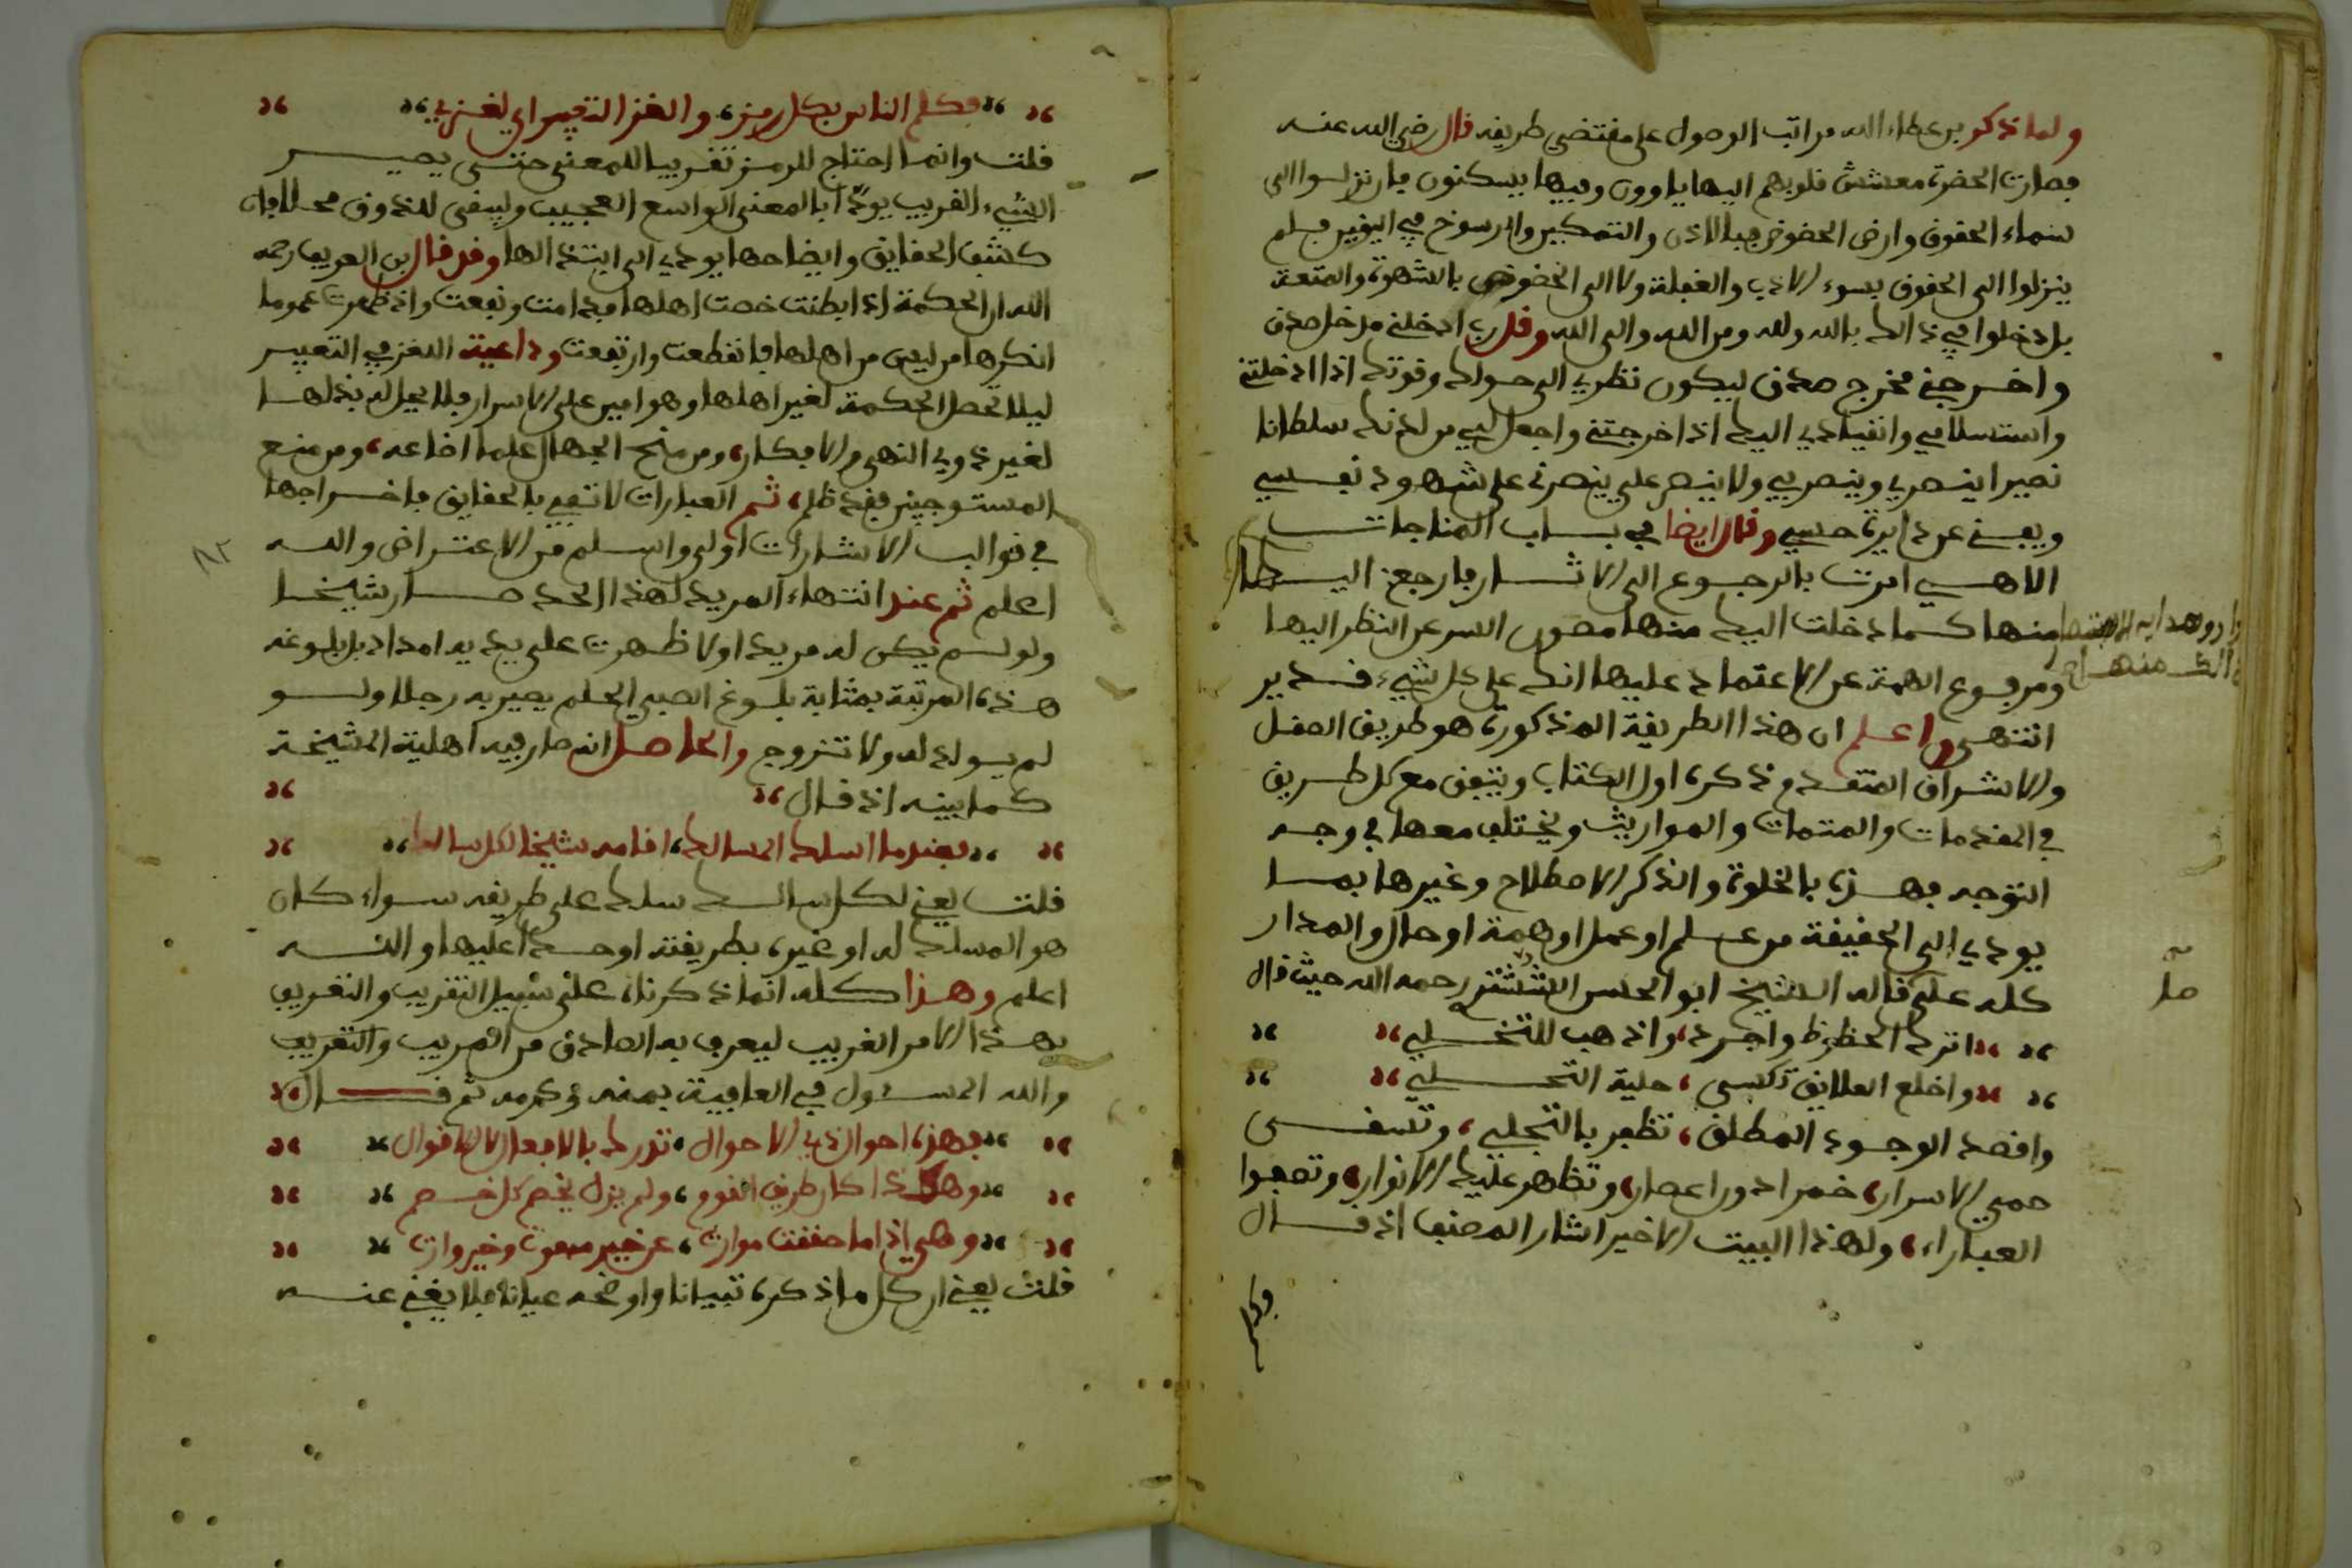 ولما ذكر بن عطاء الله مراتب الوصول على مقتضى طريقه قال رضي الله عنه
فصارت الحضرة معشش قلوبهم اليها ياوون وفيها يسكنون فان نزلوا الى
سماء الحقوق وارض الحضوض فبالاذن والتمكين والرسوخ في اليقين فلم
ينزلوا الى الحقوق بسوء الادب والغفلة ولا الى الحضوض بالشهوة والمتعة
بل دخلوا في ذالك بالله ولله ومن الله والى الله وقل رب ادخلني مدخل صدق
واخرجني مخرج صدق ليكون نظري الى حولك وقوتك اذا ادخلتني
واستسلامي وانقيادي اليك اذا اخرجتني واجعل لي من لدنك سلطانا
نصيرا ينصرني وينصر بي ولا ينصر علي ينصرني على شهود نفسي
ويفنيني عن دايرة حسي وقال ايضا في باب المناجات
الاهي امرت بالرجوع الى الاثار فارجعني اليها
منها كما دخلت اليك منها مصون السر عن النظر اليها
ومرفوع الهمة عن الاعتماد عليها انك على كل شيء قدير
انتهى واعلم ان هذا الطريقة المذكورة هو طريق الصقل
والاشراق المتقدم ذكره اول الكتاب ويتفق مع كل طريق
في المقدمات والمتمات والمواريث ويختلف معها في وجه
التوجه فهذه بالخلوة والذكر الاصطلاح وغيرها بما
يودي الى الحقيقة من علم او عمل او همة او حال والمدار
كله على ما قاله الشيخ ابو الحسن الششتري رحمه الله حيث قال
اترك الحظوظ واجرد، واذهب للتخلي
واخلع العلايق تكسى، حلية التحلي
واقصد الوجود المطلق، تظفر بالتجلي، وتسقى
حمي الاسرار، خمرا دون اعصار، وتظهر عليك الانوار، وتصفوا
العبارا، ولهذا البيت الاخير اشار المصنف اذ قال
فكلم الناس بكل رمز، والغز التفسير اي لغز
قلت وانما احتاج للرمز تقريبا للمعنى حتى يصير
الشيء القريب يودي بالمعنى الواسع العجيب ويبقى للذوق محلا فان
كشف الحقايق وايضاحها يودي الى ابتذالها وقد قال بن العريف رحمه
الله ان الحكمة اذا ابطنت خصت اهلها فدامت ونفعت واذ ظهرت عموما
انكرها من ليس من اهلها فانقطعت وارتفعت وداعية اللغز في التعبير
ليلا تحصل الحكمة لغير اهلها وهو امين على الاسرار فلا يحل له بذلها
لغير ذوي النهى والافكار، ومن منح الجهال علما اضاعه، ومن منع
المستوجبين فقد ظلم، ثم العبارات لا تفي بالحقايق فاخراجها
في قوالب الاشارات اولى واسلم من الاعتراض والله
اعلم ثم عند انتهاء المريد لهذا الحد صار شيخا
ولو لم يكن له مريد اولا ظهرت على يديه امداد بل بلوغه
هذه المرتبة بمثابة بلوغ الصبي الحلم يصير به رجلا ولو
لم يولد له ولا تزوج والحاصل انه صار فيه اهلية المشيخة
كما بينه اذ قال
فعندما اسلك المسالك، اقامه شيخا لكل سالك
قلت يعني لكل سالك سلك على طريقه سواء كان
هو المسلك له او غيره بطريقته او حده اعليها والله
اعلم وهذا كله انما ذكرناه على سبيل التقريب والتعريف
بهذا الامر الغريب ليعرف به الصادق من المريب والتقريب
والله المسئول في العافية بمنه وكرمه ثم قال
فهذه احوال ذي الاحوال، تدرك بالافعال لا الاقوال
وهكذا كان طريق القوم، ولم يزل يخصم كل خصم
وهي اذا ما حققت موارث، عن خير مبعوث وخير وارث
قلت يعني ان كل ما ذكره تبيانا واوضحه عيانا فلا يغني عنه